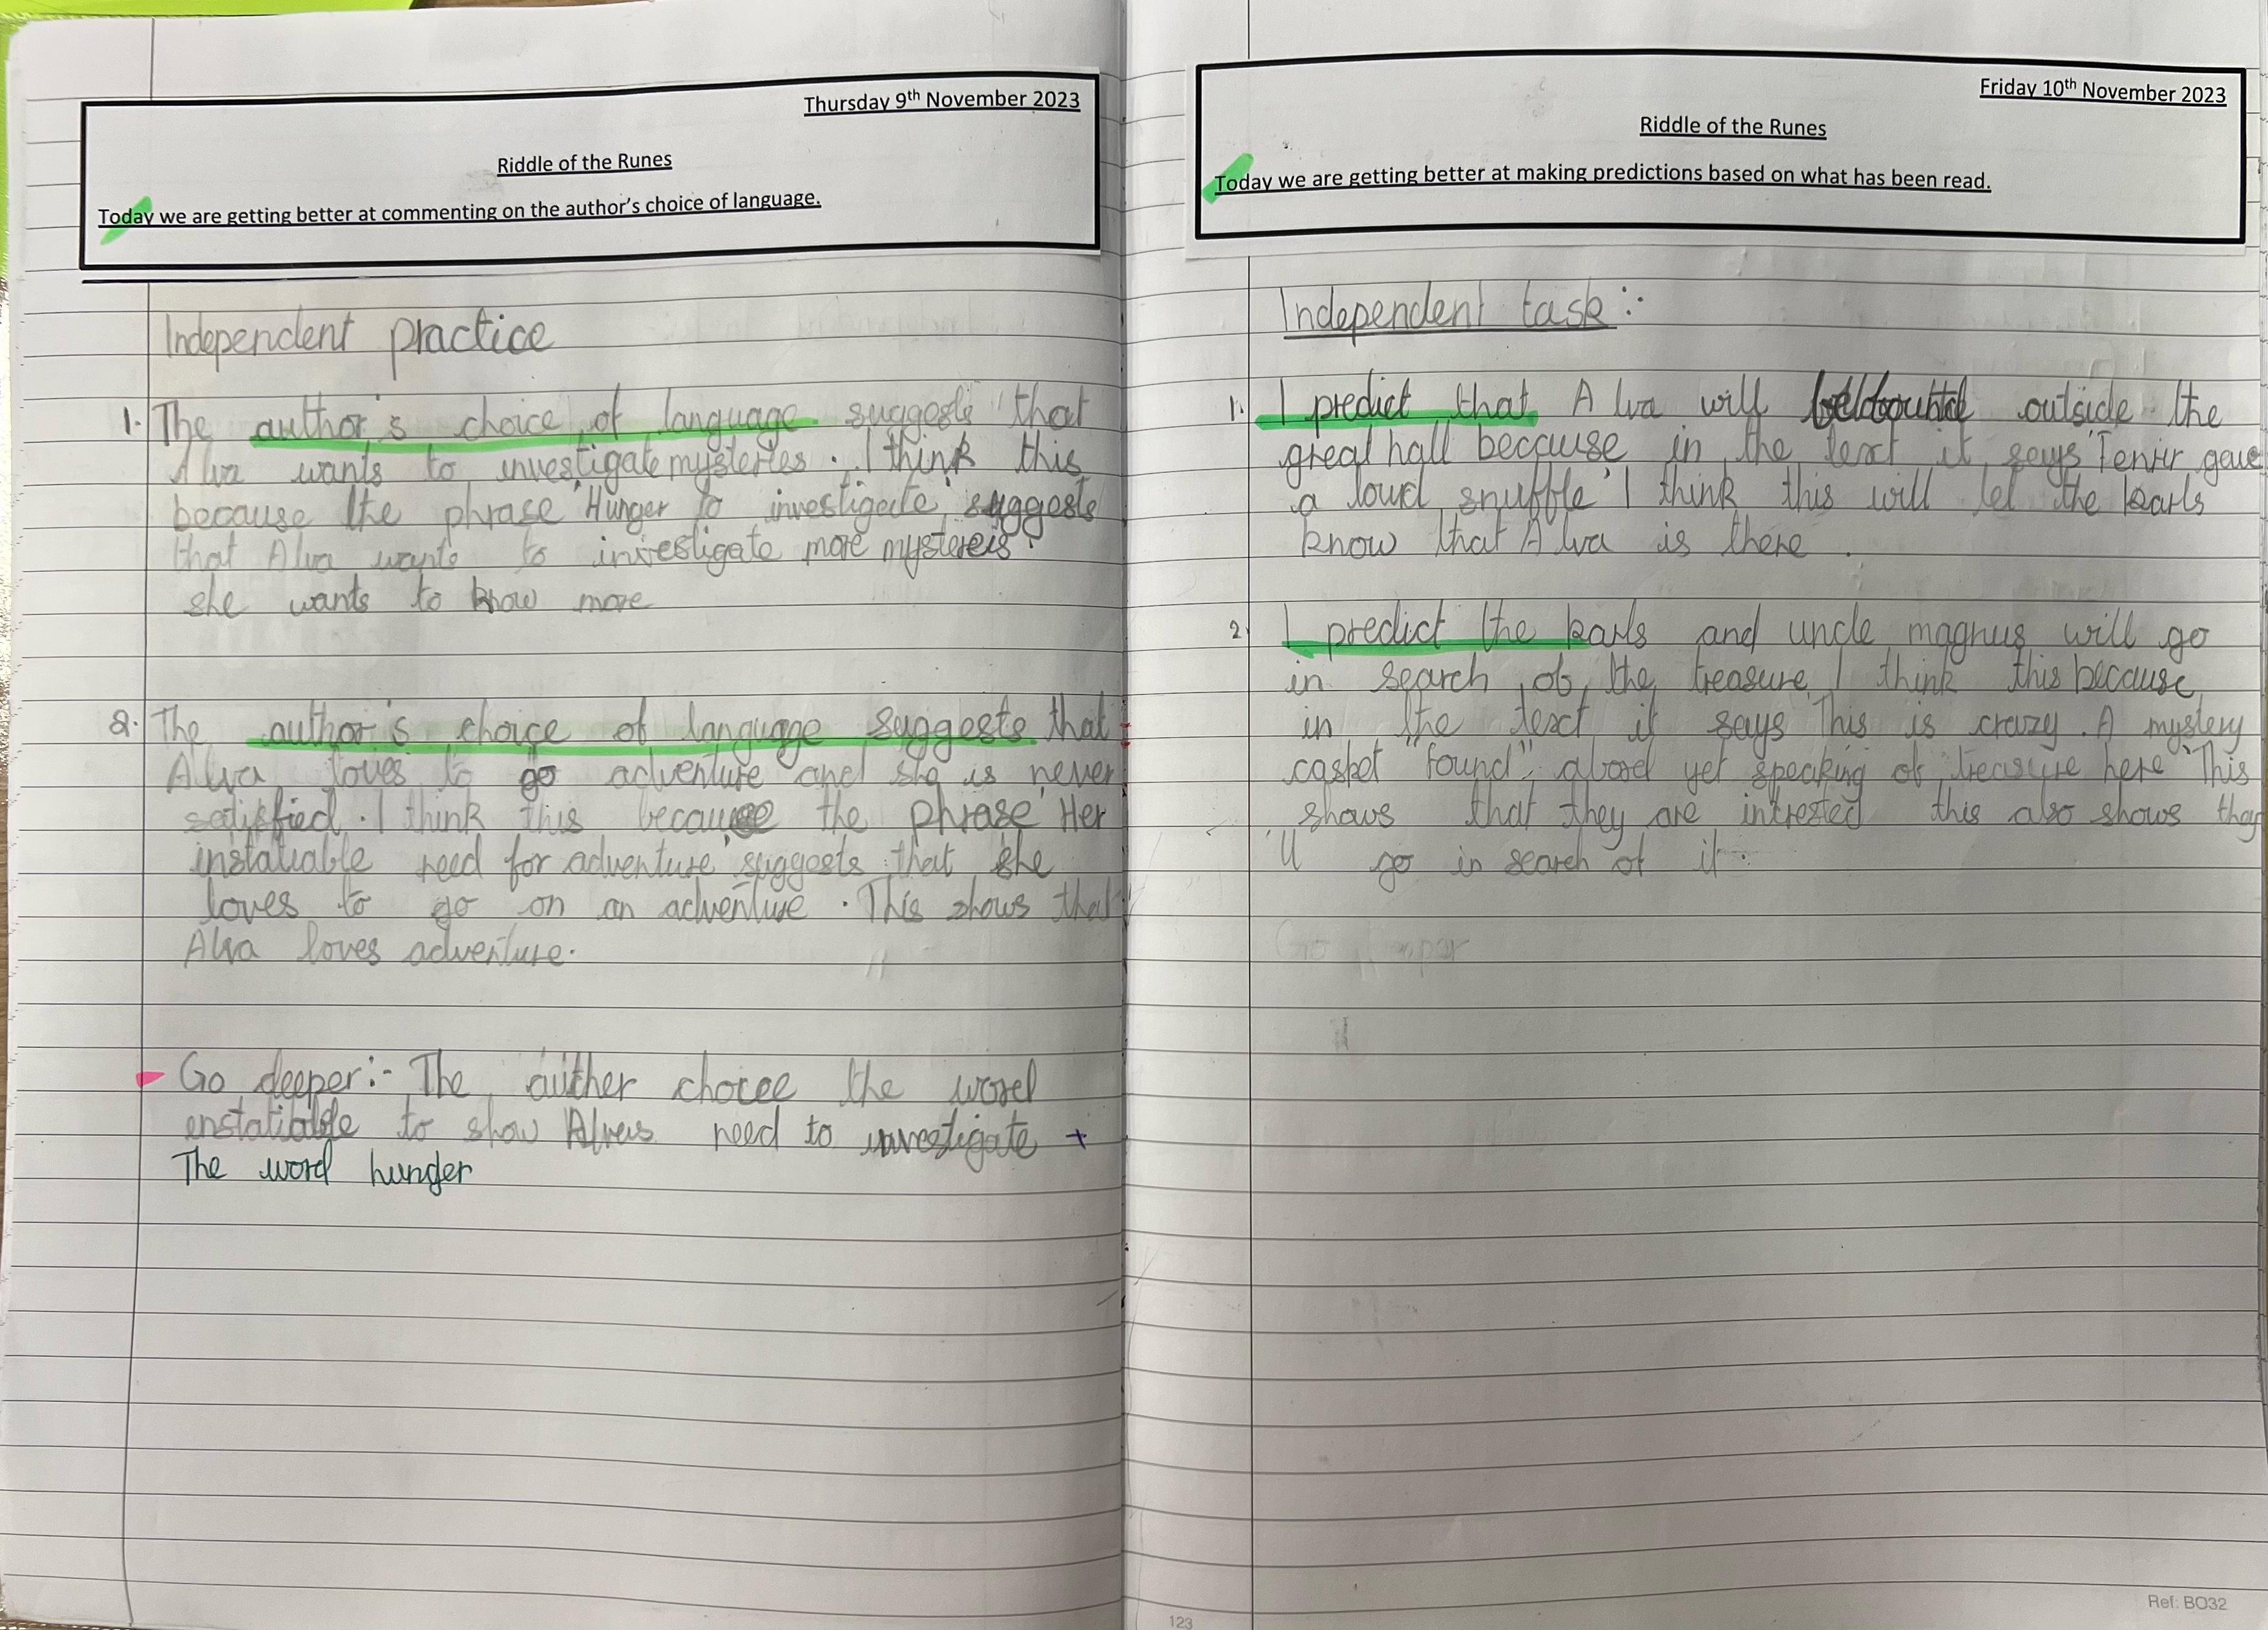 Thursday 9th November 2023
Riddle of the Runes
Today we are getting better at commenting on the author's choice of language.
Independent practice
1. The author's choice of language suggests that
Alva wants to investigate mysteries. I think this
because the phrase 'Hunger to investigate' suggests
that Alva wants to investigate more mystereis.
she wants to know more
2. The author's choice of language suggests that
Alva loves to go adventure and she is never
satisfied. I think this because the phrase 'Her
instatiable need for adventure' suggests that she
loves to go on an adventure. This shows that
Alva loves adventure.
Go deeper:- The auther choice the word
enstatiable to show Alvas need to investigate +
The word hunger
Friday 10th November 2023
Riddle of the Runes
Today we are getting better at making predictions based on what has been read.
Independent task:-
1. I predict that Alva will outside the
great hall because in the text it says 'Fenrir gave
a loud snuffle' I think this will let the karls
know that Alva is there.
2. I predict the karls and uncle magnus will go
in search of the treasure I think this because
in the text it says 'This is crazy. A mystery
casket "found", abord yet speaking of treasure here' This
shows that they are intrested this also shows they
'll go in search of it.
Go
123
Ref: BO32